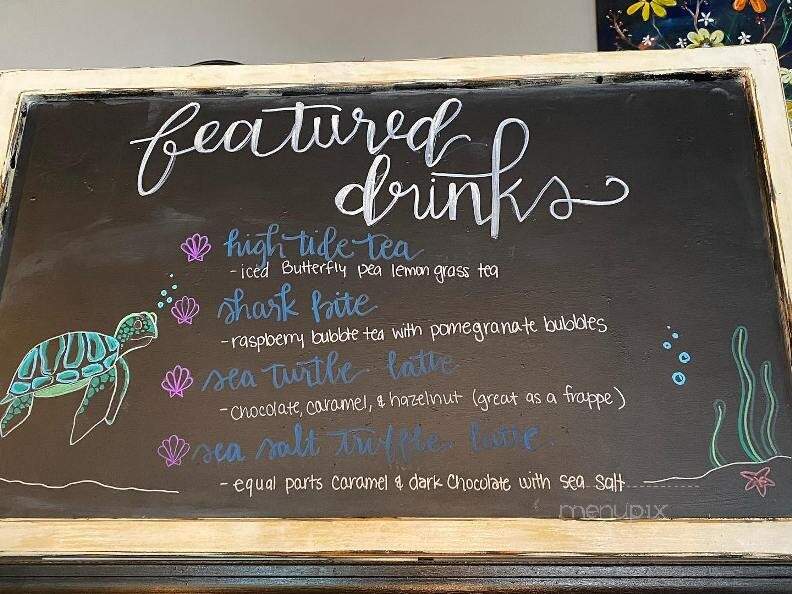 featured
drinks
high tide tea
- iced Butterfly pea lemon grass tea
shark bite
- raspberry bubble tea with pomegranate bubbles
sea turtle latte
- chocolate, caramel, & hazelnut (great as a frappe)
sea salt truffle latte
- equal parts caramel & dark chocolate with sea salt
menupix